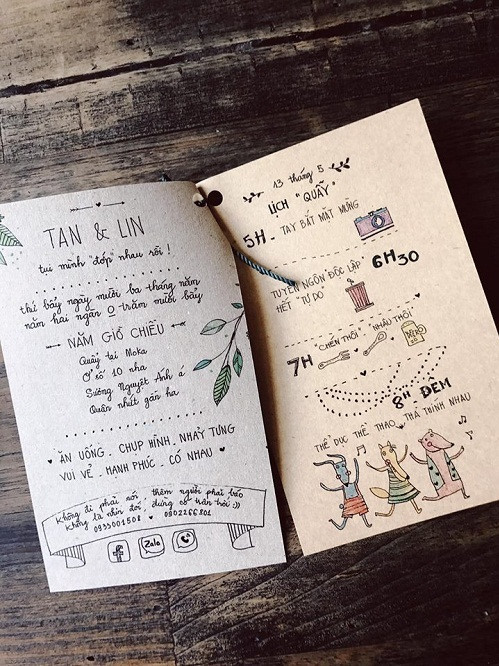 TAN & LIN
tui mình "đớp" nhau rồi !
thứ bảy ngày mười ba tháng năm
năm hai ngàn 0 trăm mười bảy
NĂM GIỜ CHIỀU
Quẩy tại Moka
Ở số 10 nha
Sương Nguyệt Ánh á
Quận nhứt gần ha
ĂN UỐNG _ CHỤP HÌNH _ NHẢY TƯNG
VUI VẺ _ HẠNH PHÚC _ CÓ NHAU
Không đi phải nói , thêm người phải báo
không là nhịn đói, đừng có trăn trối :))
0933001501 ♥ 0902266801
f Zalo
13 tháng 5
LỊCH "QUẨY"
5H_ TAY BẮT MẶT MỪNG
TUYÊN NGÔN ĐỘC LẬP 6H30
HẾT "TỰ DO"
7H "CHÉN THÔI" NHẬU THÔI
8H ĐÊM
THỂ DỤC THỂ THAO _ THẢ THÍNH NHAU